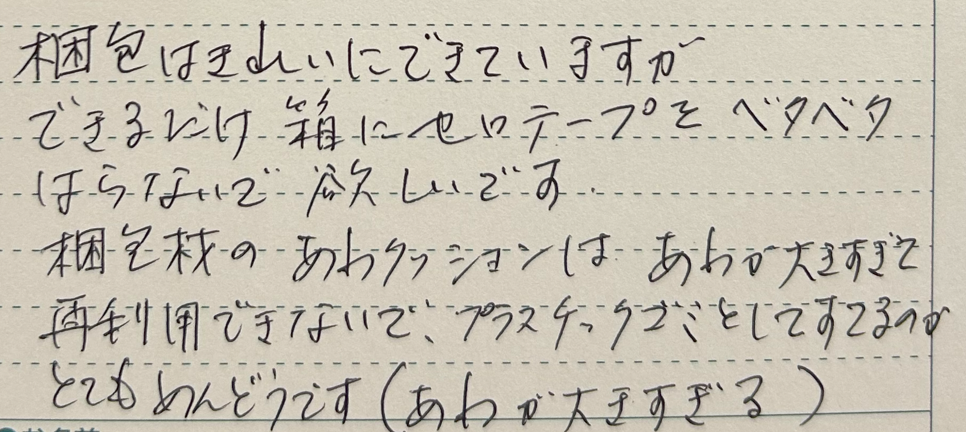 梱包はきれいにできていますが
できるだけ 箱にセロテープを ベタベタ
はらないで 欲しいです.
梱包材の あわクッションは あわが大きすぎて
再利用できないで、プラスチックゴミとしてすてるのが
とてもめんどうです(あわが大きすぎる)